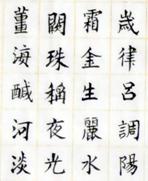 嵗律呂調陽
霜金生麗水
闕珠稱夜光
薑海醎河淡